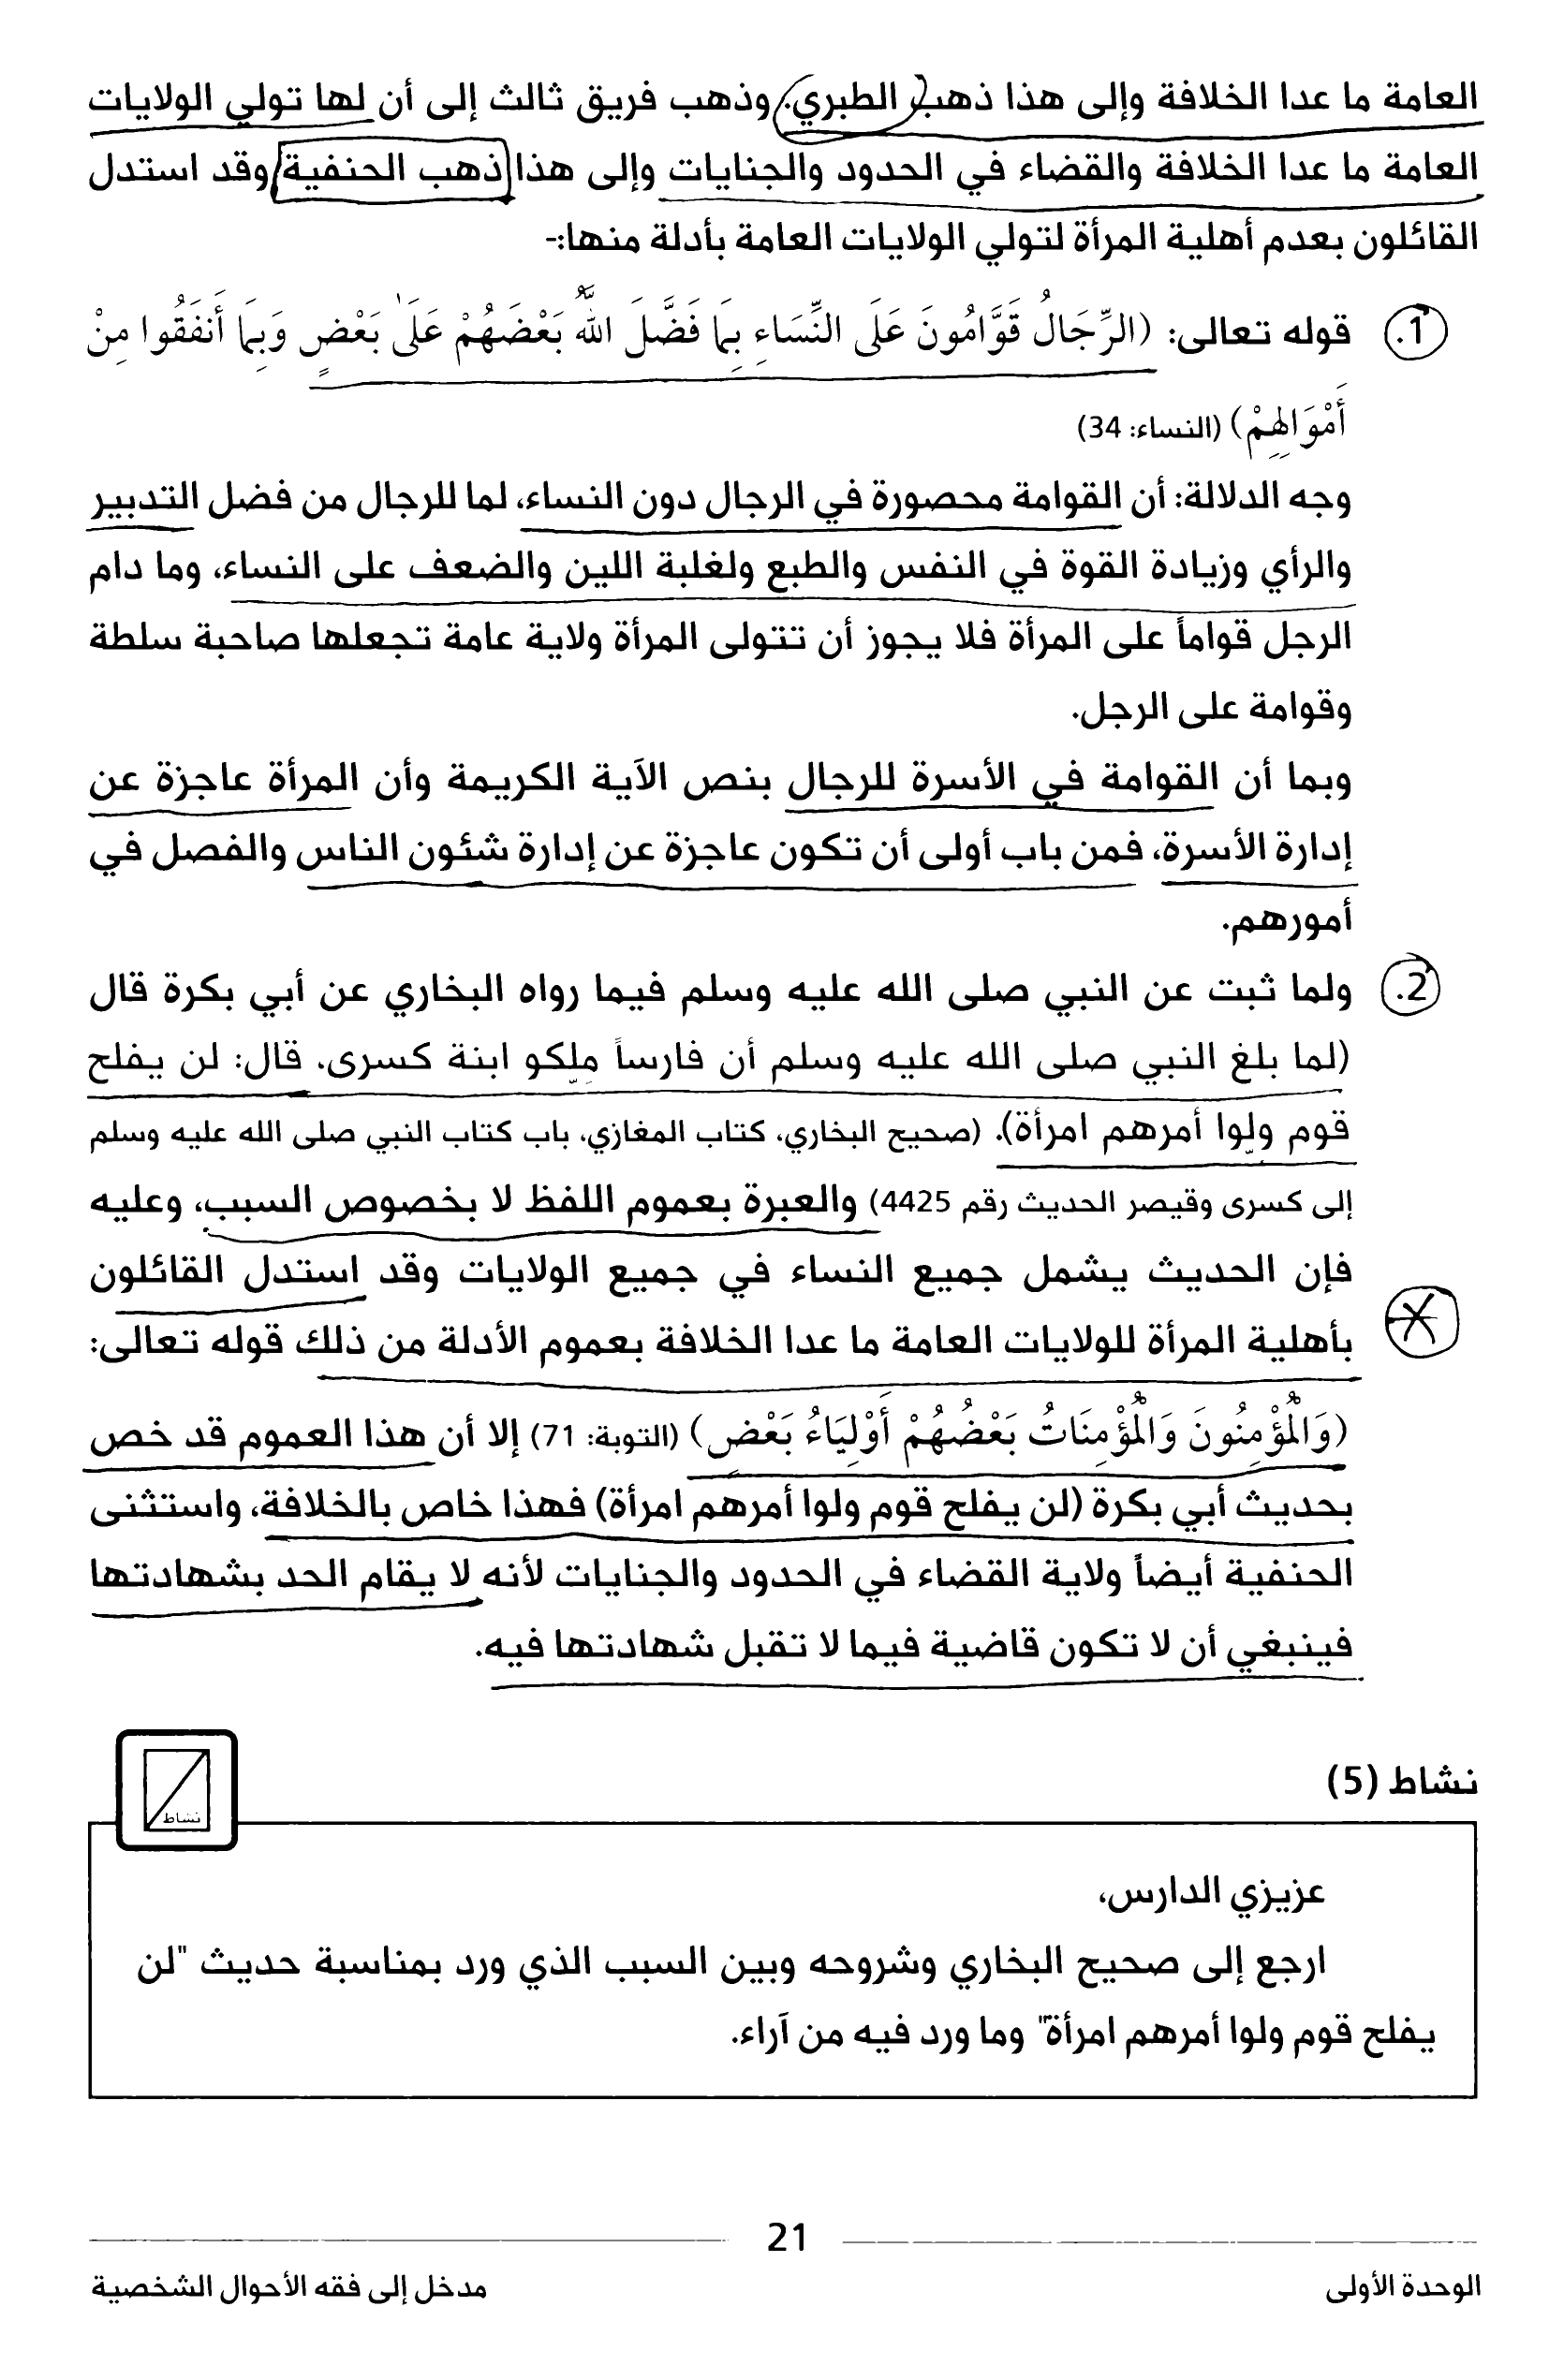 العامة ما عدا الخلافة وإلى هذا ذهب الطبري. وذهب فريق ثالث إلى أن لها تولي الولايات
العامة ما عدا الخلافة والقضاء في الحدود والجنايات وإلى هذا ذهب الحنفية وقد استدل
القائلون بعدم أهلية المرأة لتولي الولايات العامة بأدلة منها:-
1. قوله تعالى: (الرِّجَالُ قَوَّامُونَ عَلَى النِّسَاءِ بِمَا فَضَّلَ اللَّهُ بَعْضَهُمْ عَلَىٰ بَعْضٍ وَبِمَا أَنفَقُوا مِنْ
أَمْوَالِهِمْ) (النساء: 34)
وجه الدلالة: أن القوامة محصورة في الرجال دون النساء، لما للرجال من فضل التدبير
والرأي وزيادة القوة في النفس والطبع ولغلبة اللين والضعف على النساء، وما دام
الرجل قواماً على المرأة فلا يجوز أن تتولى المرأة ولاية عامة تجعلها صاحبة سلطة
وقوامة على الرجل.
وبما أن القوامة في الأسرة للرجال بنص الآية الكريمة وأن المرأة عاجزة عن
إدارة الأسرة، فمن باب أولى أن تكون عاجزة عن إدارة شئون الناس والفصل في
أمورهم.
2. ولما ثبت عن النبي صلى الله عليه وسلم فيما رواه البخاري عن أبي بكرة قال
(لما بلغ النبي صلى الله عليه وسلم أن فارساً ملّكو ابنة كسرى، قال: لن يفلح
قوم ولّوا أمرهم امرأة). (صحيح البخاري، كتاب المغازي، باب كتاب النبي صلى الله عليه وسلم
إلى كسرى وقيصر الحديث رقم 4425) والعبرة بعموم اللفظ لا بخصوص السبب، وعليه
فإن الحديث يشمل جميع النساء في جميع الولايات وقد استدل القائلون
بأهلية المرأة للولايات العامة ما عدا الخلافة بعموم الأدلة من ذلك قوله تعالى:
(وَالْمُؤْمِنُونَ وَالْمُؤْمِنَاتُ بَعْضُهُمْ أَوْلِيَاءُ بَعْضٍ) (التوبة: 71) إلا أن هذا العموم قد خص
بحديث أبي بكرة (لن يفلح قوم ولوا أمرهم امرأة) فهذا خاص بالخلافة، واستثنى
الحنفية أيضاً ولاية القضاء في الحدود والجنايات لأنه لا يقام الحد بشهادتها
فينبغي أن لا تكون قاضية فيما لا تقبل شهادتها فيه.
نشاط (5)
نشاط
عزيزي الدارس،
ارجع إلى صحيح البخاري وشروحه وبين السبب الذي ورد بمناسبة حديث "لن
يفلح قوم ولوا أمرهم امرأة" وما ورد فيه من آراء.
21
الوحدة الأولى
مدخل إلى فقه الأحوال الشخصية